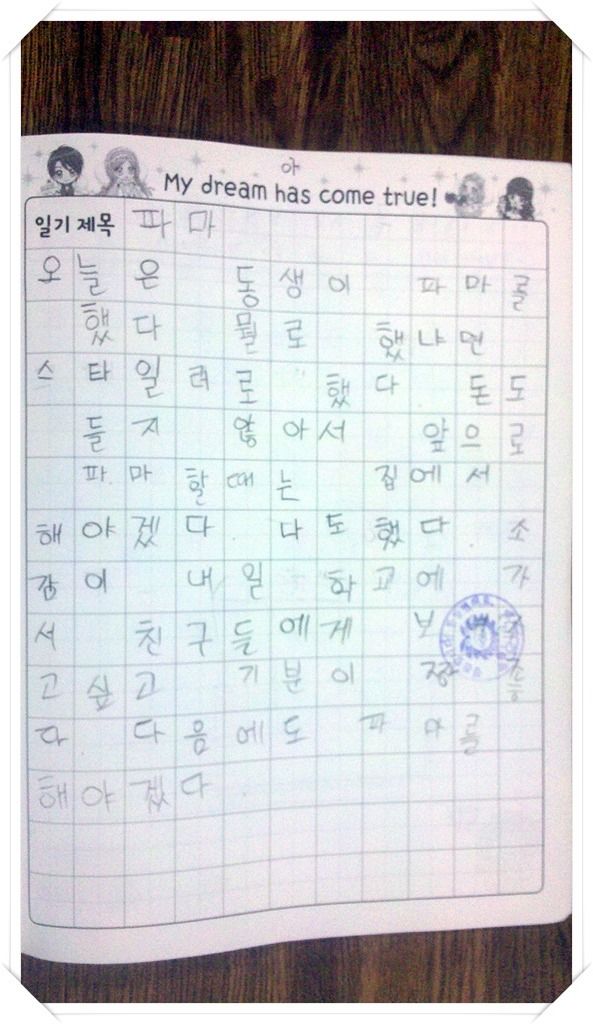 아
My dream has come true!
일기 제목 파마
오늘은 동생이 파마를
했다 뭘로 했냐면
스타일려로 했다. 돈도
들지 않아서 앞으로
파마 할때는 집에서
해야겠다. 나도 했다. 소
감이 내일 학교에 가
서 친구들에게
고싶고 기분이
다 다음에도 파마를
해야겠다.